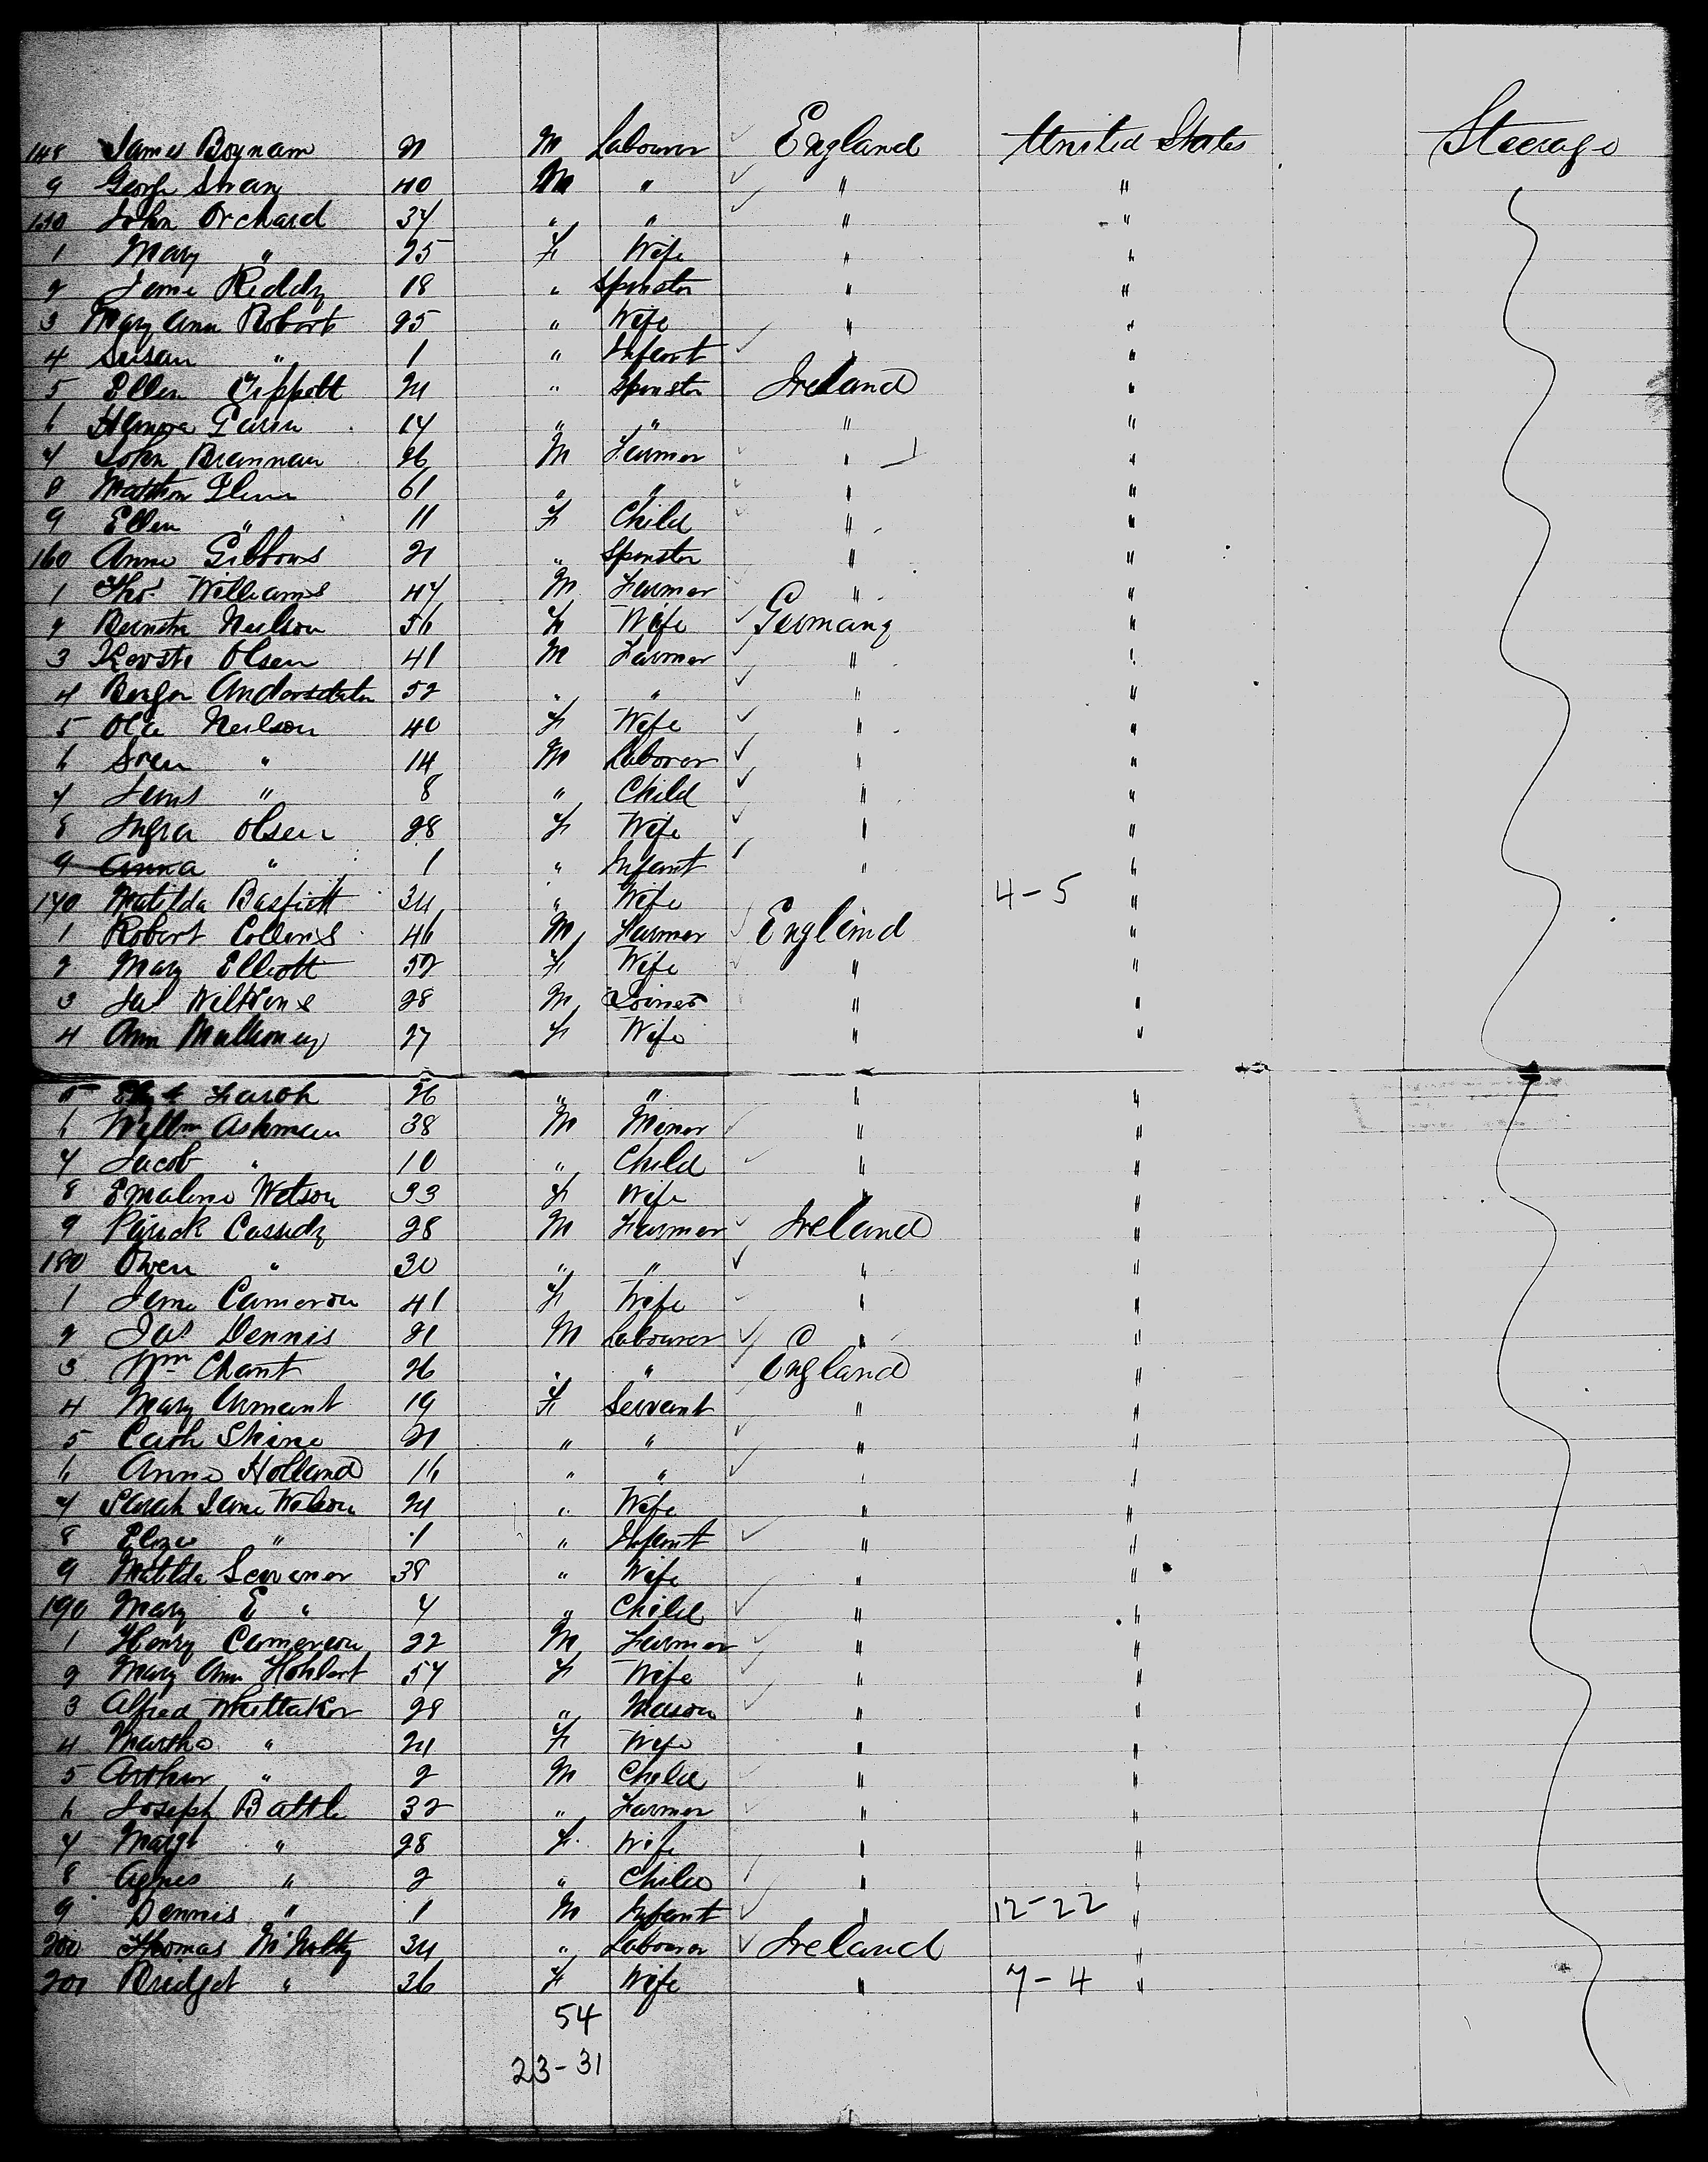 148 James Boynam 21 M Labourer England United States Steerage
9 George Strang 40 M " " "
150 John Orchard 37 " " " "
1 Mary " 25 F Wife " "
2 Jane Reddy 18 " Spinster " "
3 Mary Ann Robert 25 " Wife " "
4 Susan " 1 " Infant " "
5 Ellen Tippett 24 " Spinster Ireland "
6 Hanora 17 " " " "
7 John Brennan 26 M Farmer " "
8 Glenn 61 " " " "
9 Ellen " 11 F Child " "
160 Anne Gibbons 21 " Spinster " "
1 Thos Williams 47 M Farmer " "
2 Neilson 56 F Wife Germany "
3 Olsen 41 M Farmer " "
4 52 " " " "
5 Ola Neilson 40 F Wife " "
6 Sven " 14 M Laborer " "
7 " 8 " Child " "
8 Ingra Olsen 28 F Wife " "
9 Anna " 1 " Infant " "
170 Matilda 34 " Wife 4-5 "
1 Robert Collins 46 M Farmer England "
2 Mary Elliott 52 F Wife " "
3 Jas Wilkins 28 M Joiner " "
4 Ann Mulhoney 27 F Wife " "
5 26 " " " "
6 Willm Ashman 38 M Miner " "
7 Jacob " 10 " Child " "
8 Emaline Watson 33 F Wife " "
9 Patrick Cassidy 28 M Farmer Ireland "
180 Owen " 30 " " " "
1 Jane Cameron 41 F Wife " "
2 Jas Dennis 21 M Labourer " "
3 Wm Chant 26 " " England "
4 Mary 19 F Servant " "
5 Cath Shine 21 " " " "
6 Anne Holland 16 " " " "
7 Sarah Jane Watson 24 " Wife " "
8 Eliza " 1 " Infant " "
9 Matilda 38 " Wife " "
190 Mary E " 7 " Child " "
1 Henry Camereon 22 M Farmer " "
2 Mary Ann 57 F Wife " "
3 Alfred Whittaker 28 " Mason " "
4 Martha " 24 F Wife " "
5 Arthur " 2 M Child " "
6 Joseph Battle 32 " Farmer " "
7 Margt " 28 F Wife " "
8 Agnes " 2 " Child " "
9 Dennis " 1 M Infant " 12-22 "
200 Thomas McNulty 34 " Labourer Ireland "
201 Bridget " 36 F Wife " 7-4 "
54
23-31